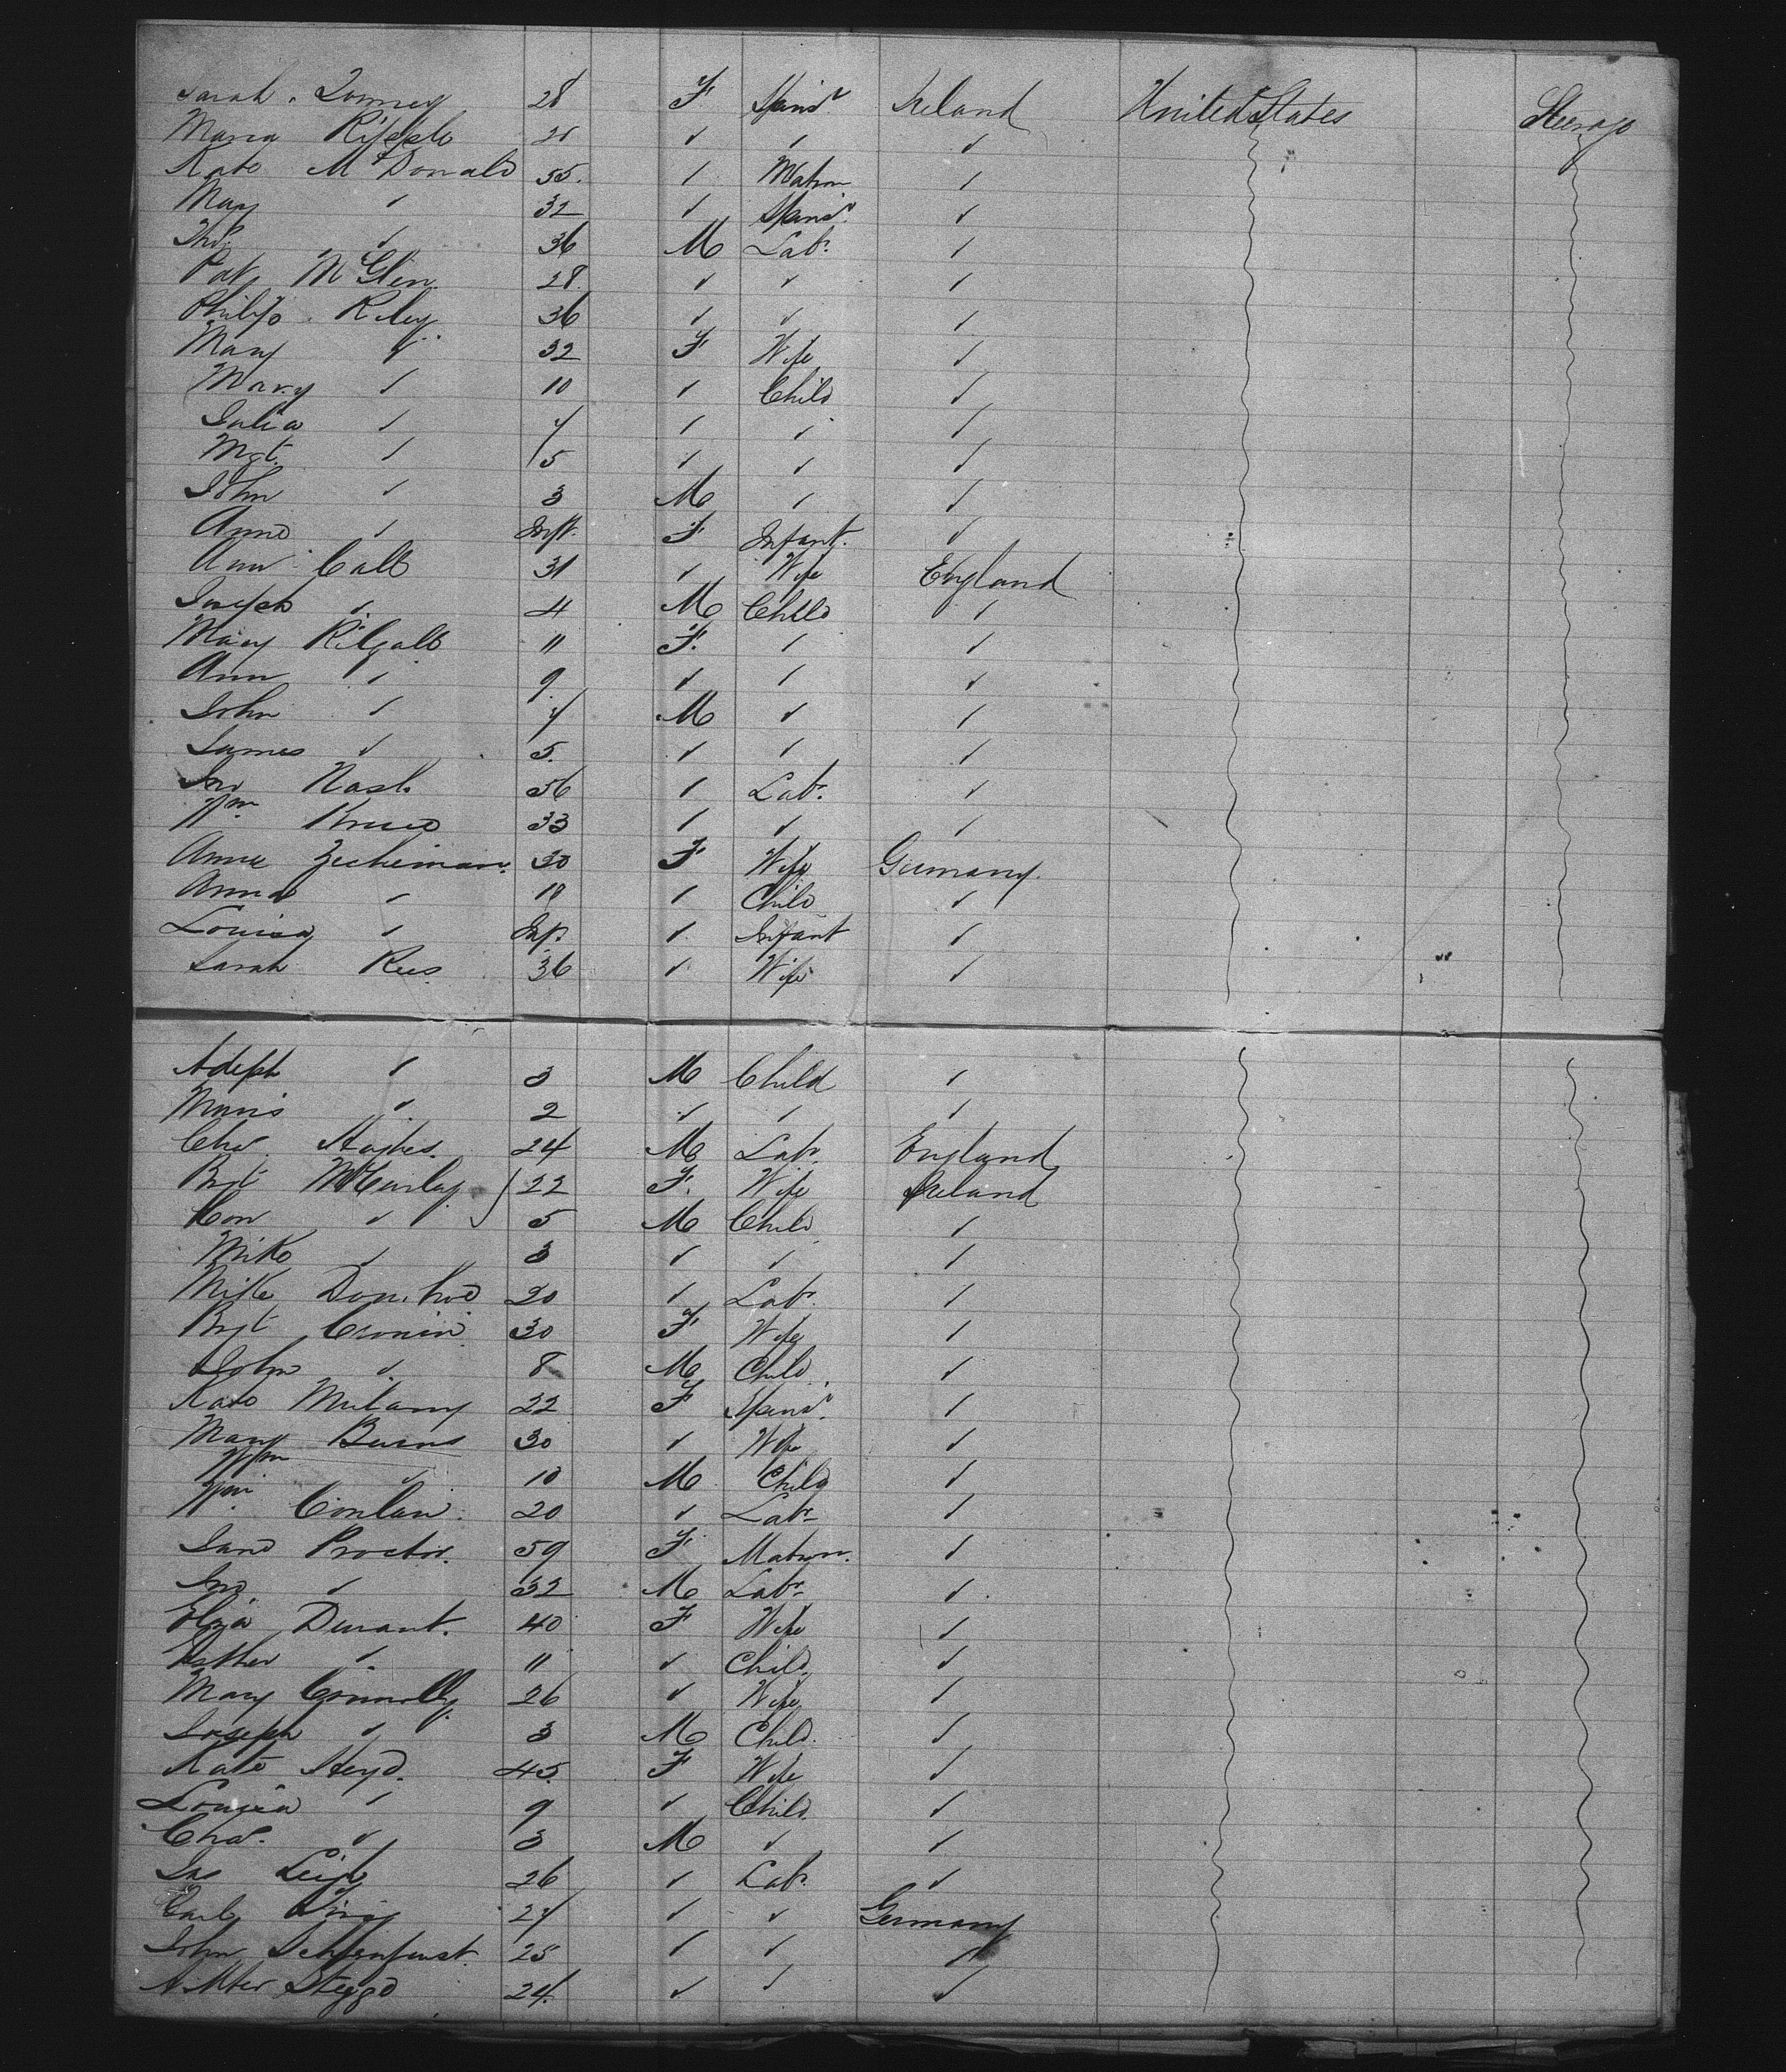 Sarah 28 F Spinsr Ireland United States Steerage
Maria ✓ ✓ ✓
Kate McDonald 35 ✓ Matron ✓
Mary ✓ 32 ✓ Spinsr ✓
Thos ✓ 36 M Labr ✓
Pat McGlen 28 ✓ ✓ ✓
Philip Riley 36 ✓ ✓ ✓
Mary ✓ 32 F Wife ✓
Mary ✓ 10 ✓ Child ✓
Julia ✓ 7 ✓ ✓ ✓
Mgt. ✓ 5 ✓ ✓ ✓
John ✓ 3 M ✓ ✓
Anne ✓ Inft. F Infant. ✓
Ann 31 ✓ Wife England
Joseph ✓ 4 M Child ✓
Mary 11 F. ✓ ✓
Ann ✓ 9 ✓ ✓ ✓
John ✓ 7 M ✓ ✓
James ✓ 5. ✓ ✓ ✓
Jno Nash 56 ✓ Labr. ✓
Wm 33 ✓ ✓ ✓
Anna Zecheiman. 30 F Wife Germany
Anna ✓ 10 ✓ Child ✓
Louisa ✓ Inf. ✓ Infant ✓
Sarah Rees 36 ✓ Wife ✓
Adolph ✓ 3 M Child ✓
✓ 2 ✓ ✓ ✓
Chas Hughes. 24 M Labr. England
Bgt 22 F. Wife Ireland
Con ✓ 5 M Child ✓
Mike ✓ 3 ✓ ✓ ✓
Mike 20 ✓ Labr. ✓
Bgt Cronin 30 F Wife ✓
John ✓ 8 M Child ✓
Kate 22 F Spinsr. ✓
Mary Burns 30 ✓ Wife ✓
Wm ✓ 10 M Child ✓
Wm Conlan. 20 ✓ Labr ✓
Jane Proctor. 59 F Matron. ✓
Jno ✓ 32 M Labr ✓
Eliza Durant. 40 F Wife ✓
Esther ✓ 11 ✓ Child ✓
Mary Connolly 26 ✓ Wife ✓
Joseph ✓ 3 M Child. ✓
Kate Heyd. 45 F Wife ✓
Louisa ✓ 9 ✓ Child. ✓
Chas. ✓ 3 M ✓ ✓
Jas 26 ✓ Labr. ✓
Carl 27 ✓ ✓ Germany
John 25 ✓ ✓ ✓
24 ✓ ✓ ✓